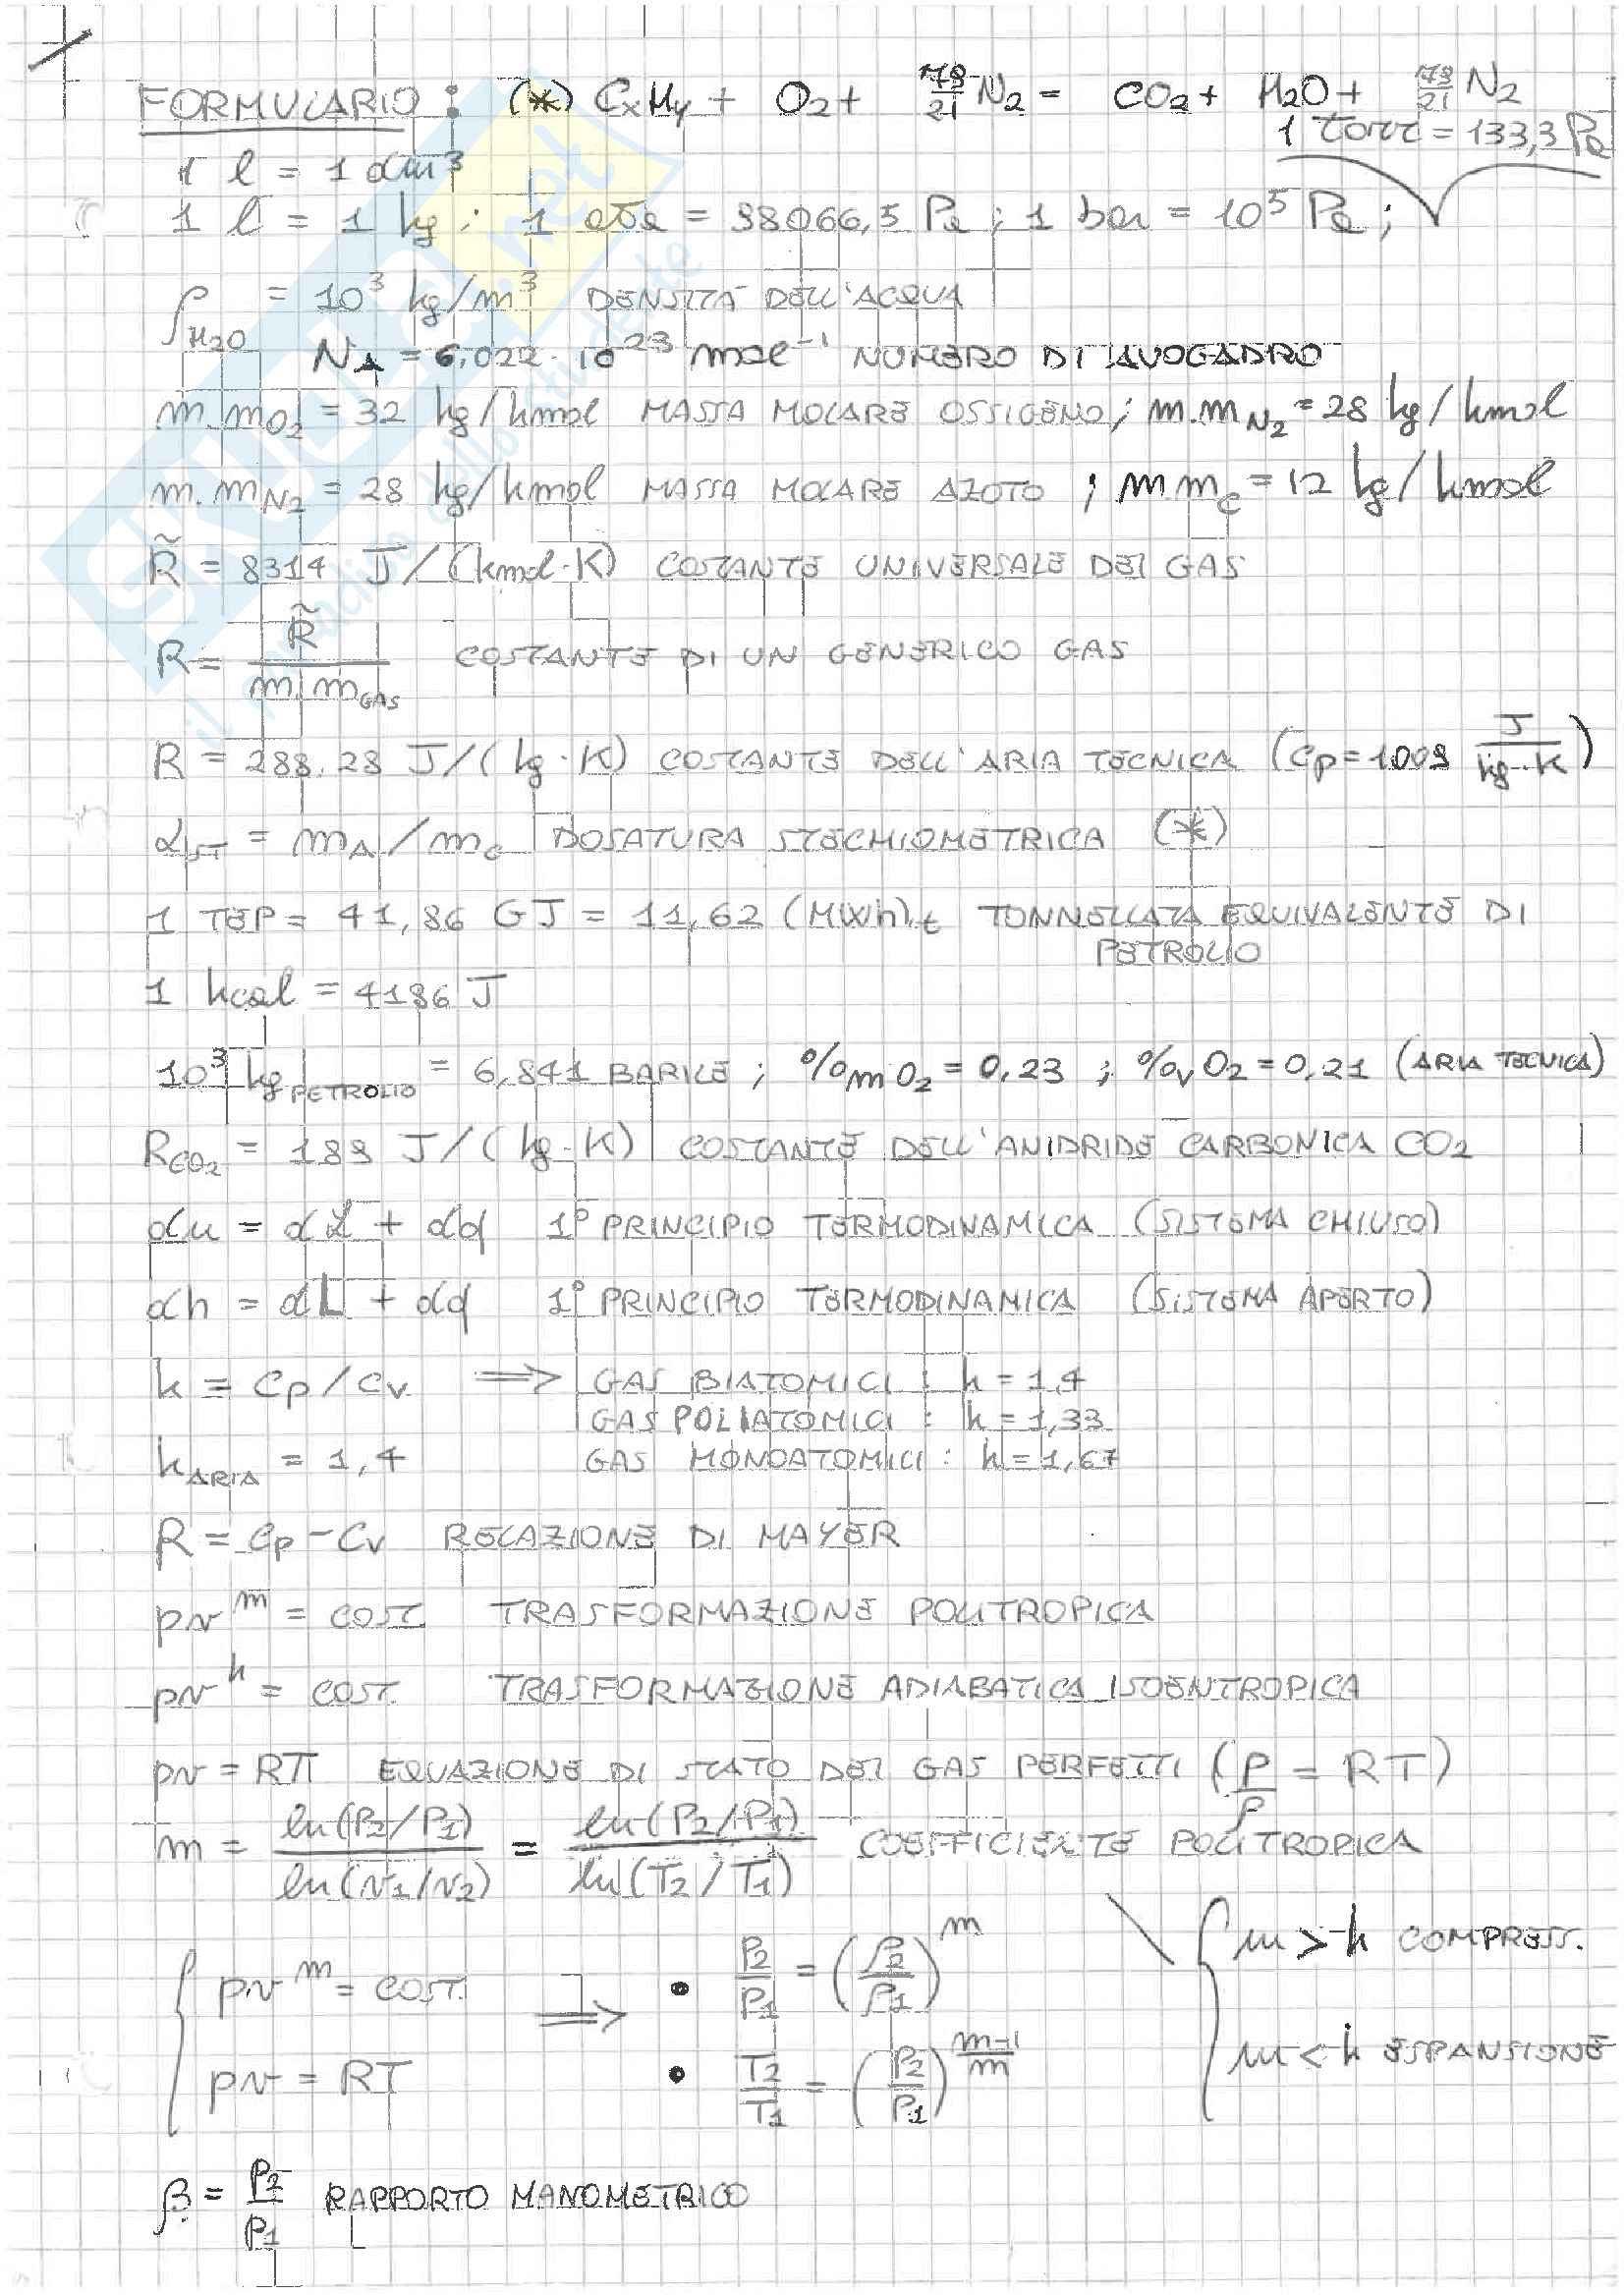 FORMULARIO: (*) CxHy + O2 + 79/21 N2 = CO2 + H2O + 79/21 N2
1 torr = 133,3 Pa
1 l = 1 dm³
1 l = 1 kg ; 1 ata = 98066,5 Pa ; 1 bar = 10⁵ Pa ;
ρH2O = 10³ kg/m³ DENSITÀ DELL'ACQUA
NA = 6,022 · 10²³ mol⁻¹ NUMERO DI AVOGADRO
m.mO2 = 32 kg/kmol MASSA MOLARE OSSIGENO ; m.mN2 = 28 kg/kmol
m.mN2 = 28 kg/kmol MASSA MOLARE AZOTO ; m.mC = 12 kg/kmol
R̃ = 8314 J/(kmol·K) COSTANTE UNIVERSALE DEI GAS
R = R̃ / m.mGAS COSTANTE DI UN GENERICO GAS
R = 288,28 J/(kg·K) COSTANTE DELL'ARIA TECNICA (Cp = 1009 J/kg·K)
αST = mA/mc DOSATURA STECHIOMETRICA (*)
1 TEP = 41,86 GJ = 11,62 (MWh)t TONNELLATA EQUIVALENTE DI
PETROLIO
1 kcal = 4186 J
10³ kg PETROLIO = 6,841 BARILE ; %m O2 = 0,23 ; %v O2 = 0,21 (ARIA TECNICA)
RCO2 = 189 J/(kg·K) COSTANTE DELL'ANIDRIDE CARBONICA CO2
du = dL + dq 1° PRINCIPIO TERMODINAMICA (SISTEMA CHIUSO)
dh = dL + dq 1° PRINCIPIO TERMODINAMICA (SISTEMA APERTO)
k = Cp/Cv ⇒ GAS BIATOMICI : k = 1,4
GAS POLIATOMICI : k = 1,33
kARIA = 1,4 GAS MONOATOMICI : k = 1,67
R = Cp - Cv RELAZIONE DI MAYER
pv^m = COST. TRASFORMAZIONE POLITROPICA
pv^k = COST. TRASFORMAZIONE ADIABATICA ISOENTROPICA
pv = RT EQUAZIONE DI STATO DEI GAS PERFETTI (P/ρ = RT)
m = ln(P2/P1) / ln(v1/v2) = ln(P2/P1) / ln(T2/T1) COEFFICIENTE POLITROPICA
pv^m = COST. ⇒ • P2/P1 = (ρ2/ρ1)^m
m > k COMPRESS.
pv = RT • T2/T1 = (P2/P1)^((m-1)/m)
m < k ESPANSIONE
β = P2/P1 RAPPORTO MANOMETRICO